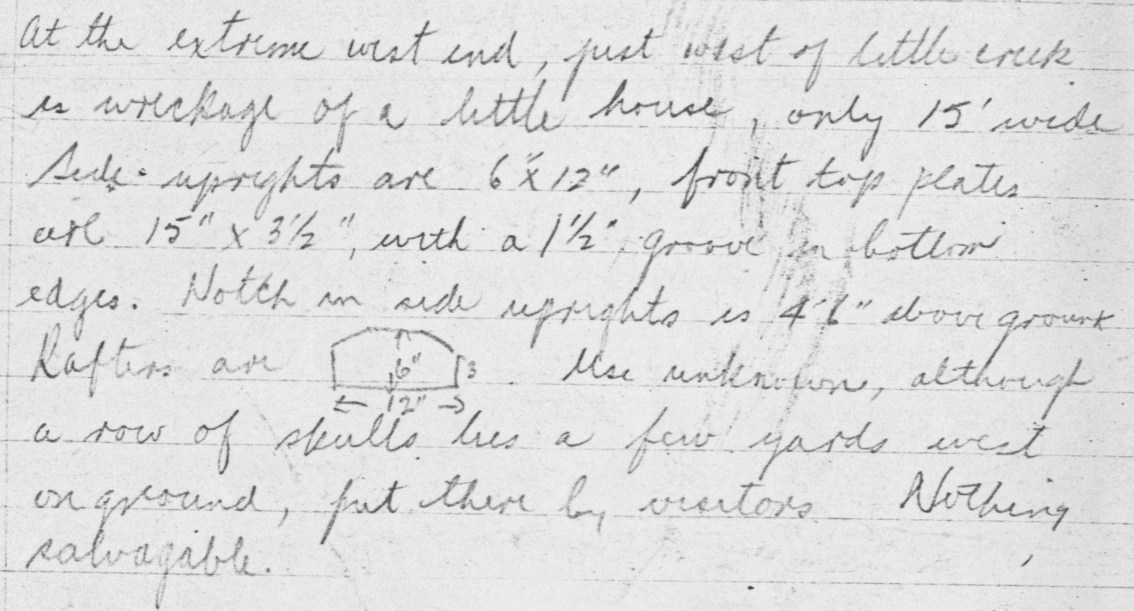 At the extreme west end, just west of little creek
is wreckage of a little house, only 15' wide
Side uprights are 6" x 12", front top plates
are 15" x 3½", with a 1½" groove in bottom
edges. Notch in side uprights is 4'6" above ground
Rafters are 6" 3 12" . Use unknown, although
a row of skulls lies a few yards west
on ground, put there by visitors Nothing
salvagable.